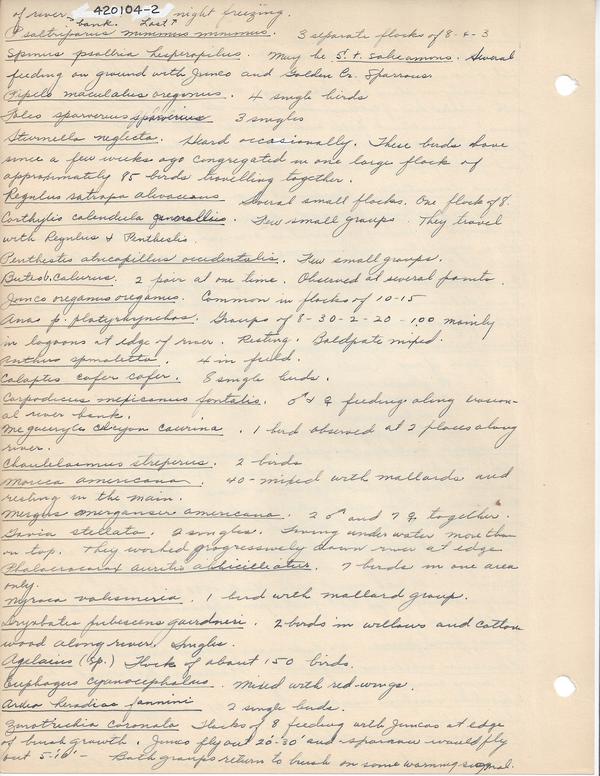 420104-2
of river bank. Last night freezing.
Psaltriparus minimus minimus. 3 separate flocks of 8-6-3
Spinus psaltria hesperophilus. May be S. t. salicamans. Several
feeding on ground with Junco and Golden Cr. Sparrows.
Pipilo maculatus oregonus. 4 single birds
Falco sparverius sparverius 3 singles
Sturnella neglecta. Heard occasionally. These birds have
since a few weeks ago congregated in one large flock of
approximately 85 birds travelling together.
Regulus satrapa olivaceous Several small flocks. One flock of 8.
Corthylio calendula Few small groups. They travel
with Regulus & Penthestis.
Penthestes atricapillus occidentalis. Few small groups.
Buteo b. calurus. 2 pair at one time. Observed at several points.
Junco oreganus oreganus. Common in flocks of 10-15
Anas p. platyrhynchos. Groups of 8-30-2-20-100 mainly
in lagoons at edge of river. Resting. Baldpate mixed.
Anthus spinoletta. 4 in field.
Colaptes cafer cafer. 8 single birds.
Carpodicus mexicanus fontalis. ♂ & ♀ feeding along
al river bank.
Megaceryle alcyon caurina. 1 bird observed at 2 places along
river.
Chaulelasmus streperus. 2 birds
Mareca americana. 40 - mixed with mallards and
resting in the main.
Mergus merganser americana. 2 ♂ and 7 ♀ together.
Gavia stellata. 2 singles. under water more than
on top. They worked progressively down river at edge.
Phalacrocorax auritis albicilliatus. 7 birds in one area
only.
Nyroca valisineria. 1 bird with mallard group.
Dryobates pubescens gairdneri. 2 birds in willows and cotton
wood along river. Singles.
Agelaius (sp.) Flock of about 150 birds.
Euphagus cyanocephalus. Mixed with red-wings.
Ardea herodias fannini 2 single birds.
Zonotrichia coronata Flocks of 8 feeding with Juncos at edge
of brush growth. Junco fly out 20'-30' and sparrow would fly
out 5'-16' - Both groups return to brush on some warning signal.